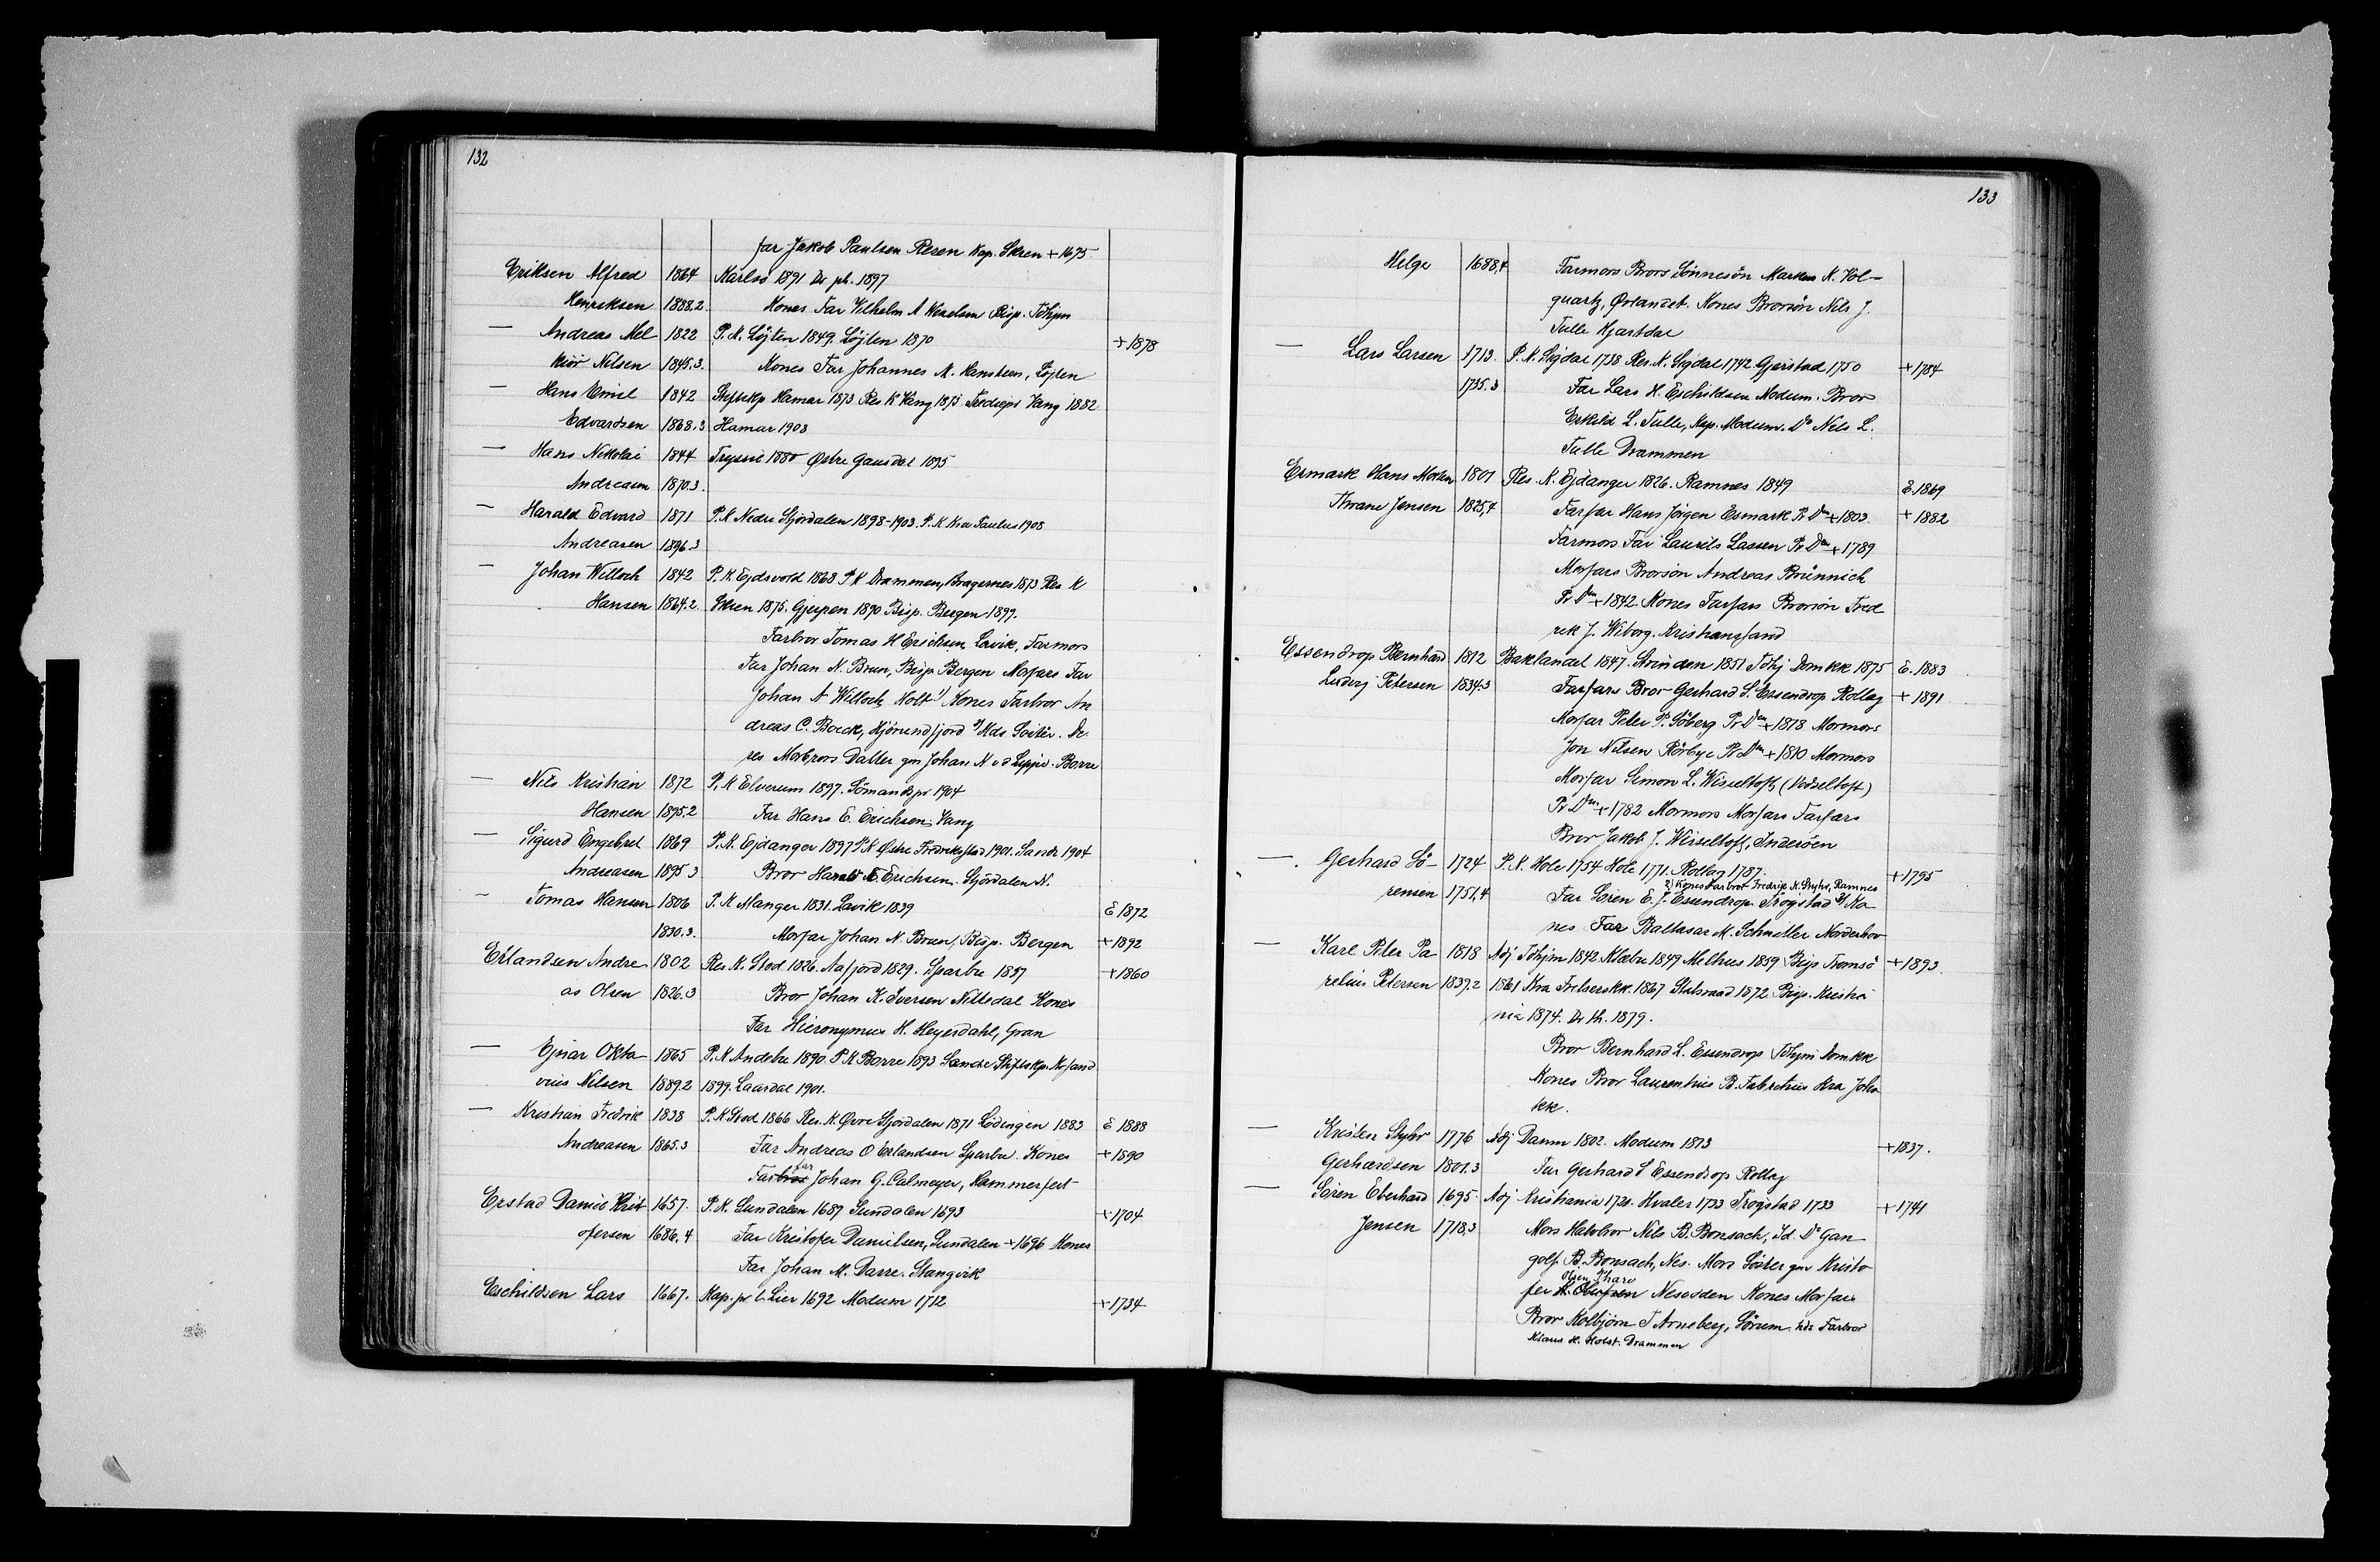 132
far Jakob Paulsen Resen Kap. Skren + 1675
Eriksen Alfred 1864 Karlsö 1891 Dr ph. 1897
Henriksen 1888.2. Kones Far Vilhelm A Wexelsen Bisp. Tdhjm
— Andreas Mel 1822 P. K. Löjten 1849. Löjten 1870 + 1878
kior Nilsen 1845.3. Kones Far Johannes M. Hansteen, Löjten
— Hans Emil 1842 Stiftskp Hamar 1873 Res K Vang 1875 Vang 1882
Edvardsen 1868.3 Hamar 1903
— Hans Nikolai 1844 Trysil 1880 Østre Gausdal 1895
Andreasen 1870.3.
— Harald Edvard 1871 P. K Nedre Stjördalen 1898-1903. P. K Kra Paulus 1908
Andreasen 1896.3
— Johan Willoch 1842 P. K Ejdsvold 1868 P K Drammen, Bragernes 1873 Res K
Hansen 1864.2. Skien 1875. Gjerpen 1890 Bisp. Bergen 1899.
Farbror Tomas H Erichsen Lavik, Farmors
Far Johan N. Brun, Bisp Bergen Morfars Far
Johan A Willoch Holt 1) Kones Farbror An
dreas C. Boeck, Hjörundfjord 2) Hds Söster. De
res Morbrors Datter gm Johan N v d Lippe. Borre
— Nils Kristian 1872 P. K Elverum 1897. Sömandspr 1904
Hansen 1895.2 Far Hans E. Erichsen, Vang
— Sigurd Engebret 1869 P. K. Ejdanger 1897 P K Østre Fredrikstad 1901. Sande 1904
Andreasen 1895 3 Bror Harald E. Erichsen. Stjördalen N.
— Tomas Hansen 1806 P. K Manger 1831. Lavik 1839 E 1872
1830.3. Morfar Johan N. Brun, Bisp. Bergen + 1892
Erlandsen Andre 1802 Res. K. Stod 1826. Aafjord 1829. Sparbu 1837 + 1860
as Olsen 1826.3 Bror Johan K. Iversen Nittedal Kones
Far Hieronymus H. Heyerdahl, Gran
— Ejnar Okta 1865 P. K Andebu 1890 P. K Borre 1893 Sande Stiftskp. Krsand
vius Nilsen 1889.2 1899. Laardal 1901.
— Kristian Fredrik 1838 P. K Stod 1866 Res. K. Øvre Stjördalen 1871 Lödingen 1883 E 1888
Andreasen 1865.3 Far Andreas O Erlandsen Sparbu. Kones + 1890
far
Farbror Johan G. Calmeyer, Hammerfest
Erstad Daniel Krist 1657. P. K. Sundalen 1687 Sundalen 1693 + 1704
ofersen 1686.4 Far Kristofer Danielsen, Sundalen + 1696 Kones
Far Johan M. Darre. Stangvik
Eschildsen Lars 1667. Kap. pr l. Lier 1692 Modum 1712 + 1734
133
Helge 1688,4 Farmors Brors Sönnesön Markus N. Vol-
quartz, Ørlandet. Kones Brorsön Nils J.
Tulle Hjartdal
— Lars Larsen 1713. P. K. Sigdal 1738 Res. K. Sigdal 1742 Gjerstad 1750 + 1784
1735.3 Far Lars H. Eschildsen Modum. Bror
Eskild L. Tulle, Kap. Modum. Do Nels L.
Tulle Drammen
Esmark Hans Morten 1801 Res. K. Ejdanger 1826. Ramnes 1849 E. 1869
Thrane Jensen 1825,4 Farfar Hans Jörgen Esmark Pr Dm + 1803. + 1882
Farmors Far Laurits Lassen Pr Dm + 1789
Morfars Brorsön Andreas Brünnich
Pr Dm + 1842. Kones Farfars Brorsön Fred
rek J. Wiborg. Kristiansand
Essendrop Bernhard 1812 Baklandet 1847. Strinden 1851 Tdhj Domkk 1875 E. 1883
Ludvig Petersen 1834.3 Farfars Bror Gerhard S. Essendrop Rollag + 1891
Morfar Peter P. Söberg Pr Dm + 1818 Mormors
Jon Nilsen Rörbye Pr Dm + 1810 Mormors
Morfar Simon L. Wisseltoft (Vidseltoft)
Pr Dm + 1782 Mormors Morfars Farfars
Bror Jakob J. Wisseltoft, Inderöen
— Gerhard Sö- 1724 P. K. Hole 1754 Hole 1771. Rollag 1787. + 1795
2) Kones Farbror Fredrik K. Styhr, Ramnes
rensen 1751,4 Far Sören E. J. Essendrop. Trögstad 1) Ko-
nes Far Baltasar M. Schnitler Norderhov
— Karl Peter Pa 1818 Adj Tdhjm 1842. Klæbu 1849 Melhus 1859 Bisp Tromsö + 1893.
relius Petersen 1839.2 1861 Kra Frelserskk. 1867 Statsraad 1872 Bisp. Kristia
nia 1874. Dr th. 1879.
Bror Bernhard L. Essendrop Tdhjm Domkk
Kones Bror Laurentius B. Fabritius Kra Joha
kk.
— Kristen Styhr 1776 Adj Danm 1802. Modum 1813 + 1837.
Gerhardsen 1801.3 Far Gerhard S Essendrop Rollag
— Sören Eberhard 1695. Adj Kristiania 1721. Hvaler 1733 Trögstad 1733 + 1741
Jensen 1718,3 Mors Halvbror Nils B. Bonsach, Id. Do Gan
golf. B. Bonsach, Nes. Mors Söster gm Kristo
Olsen Thare
fer Nesodden Kones Morfars
Bror Kolbjörn T Arneberg, Sörum. hds Farbror
Klaus H. Holst. Drammen